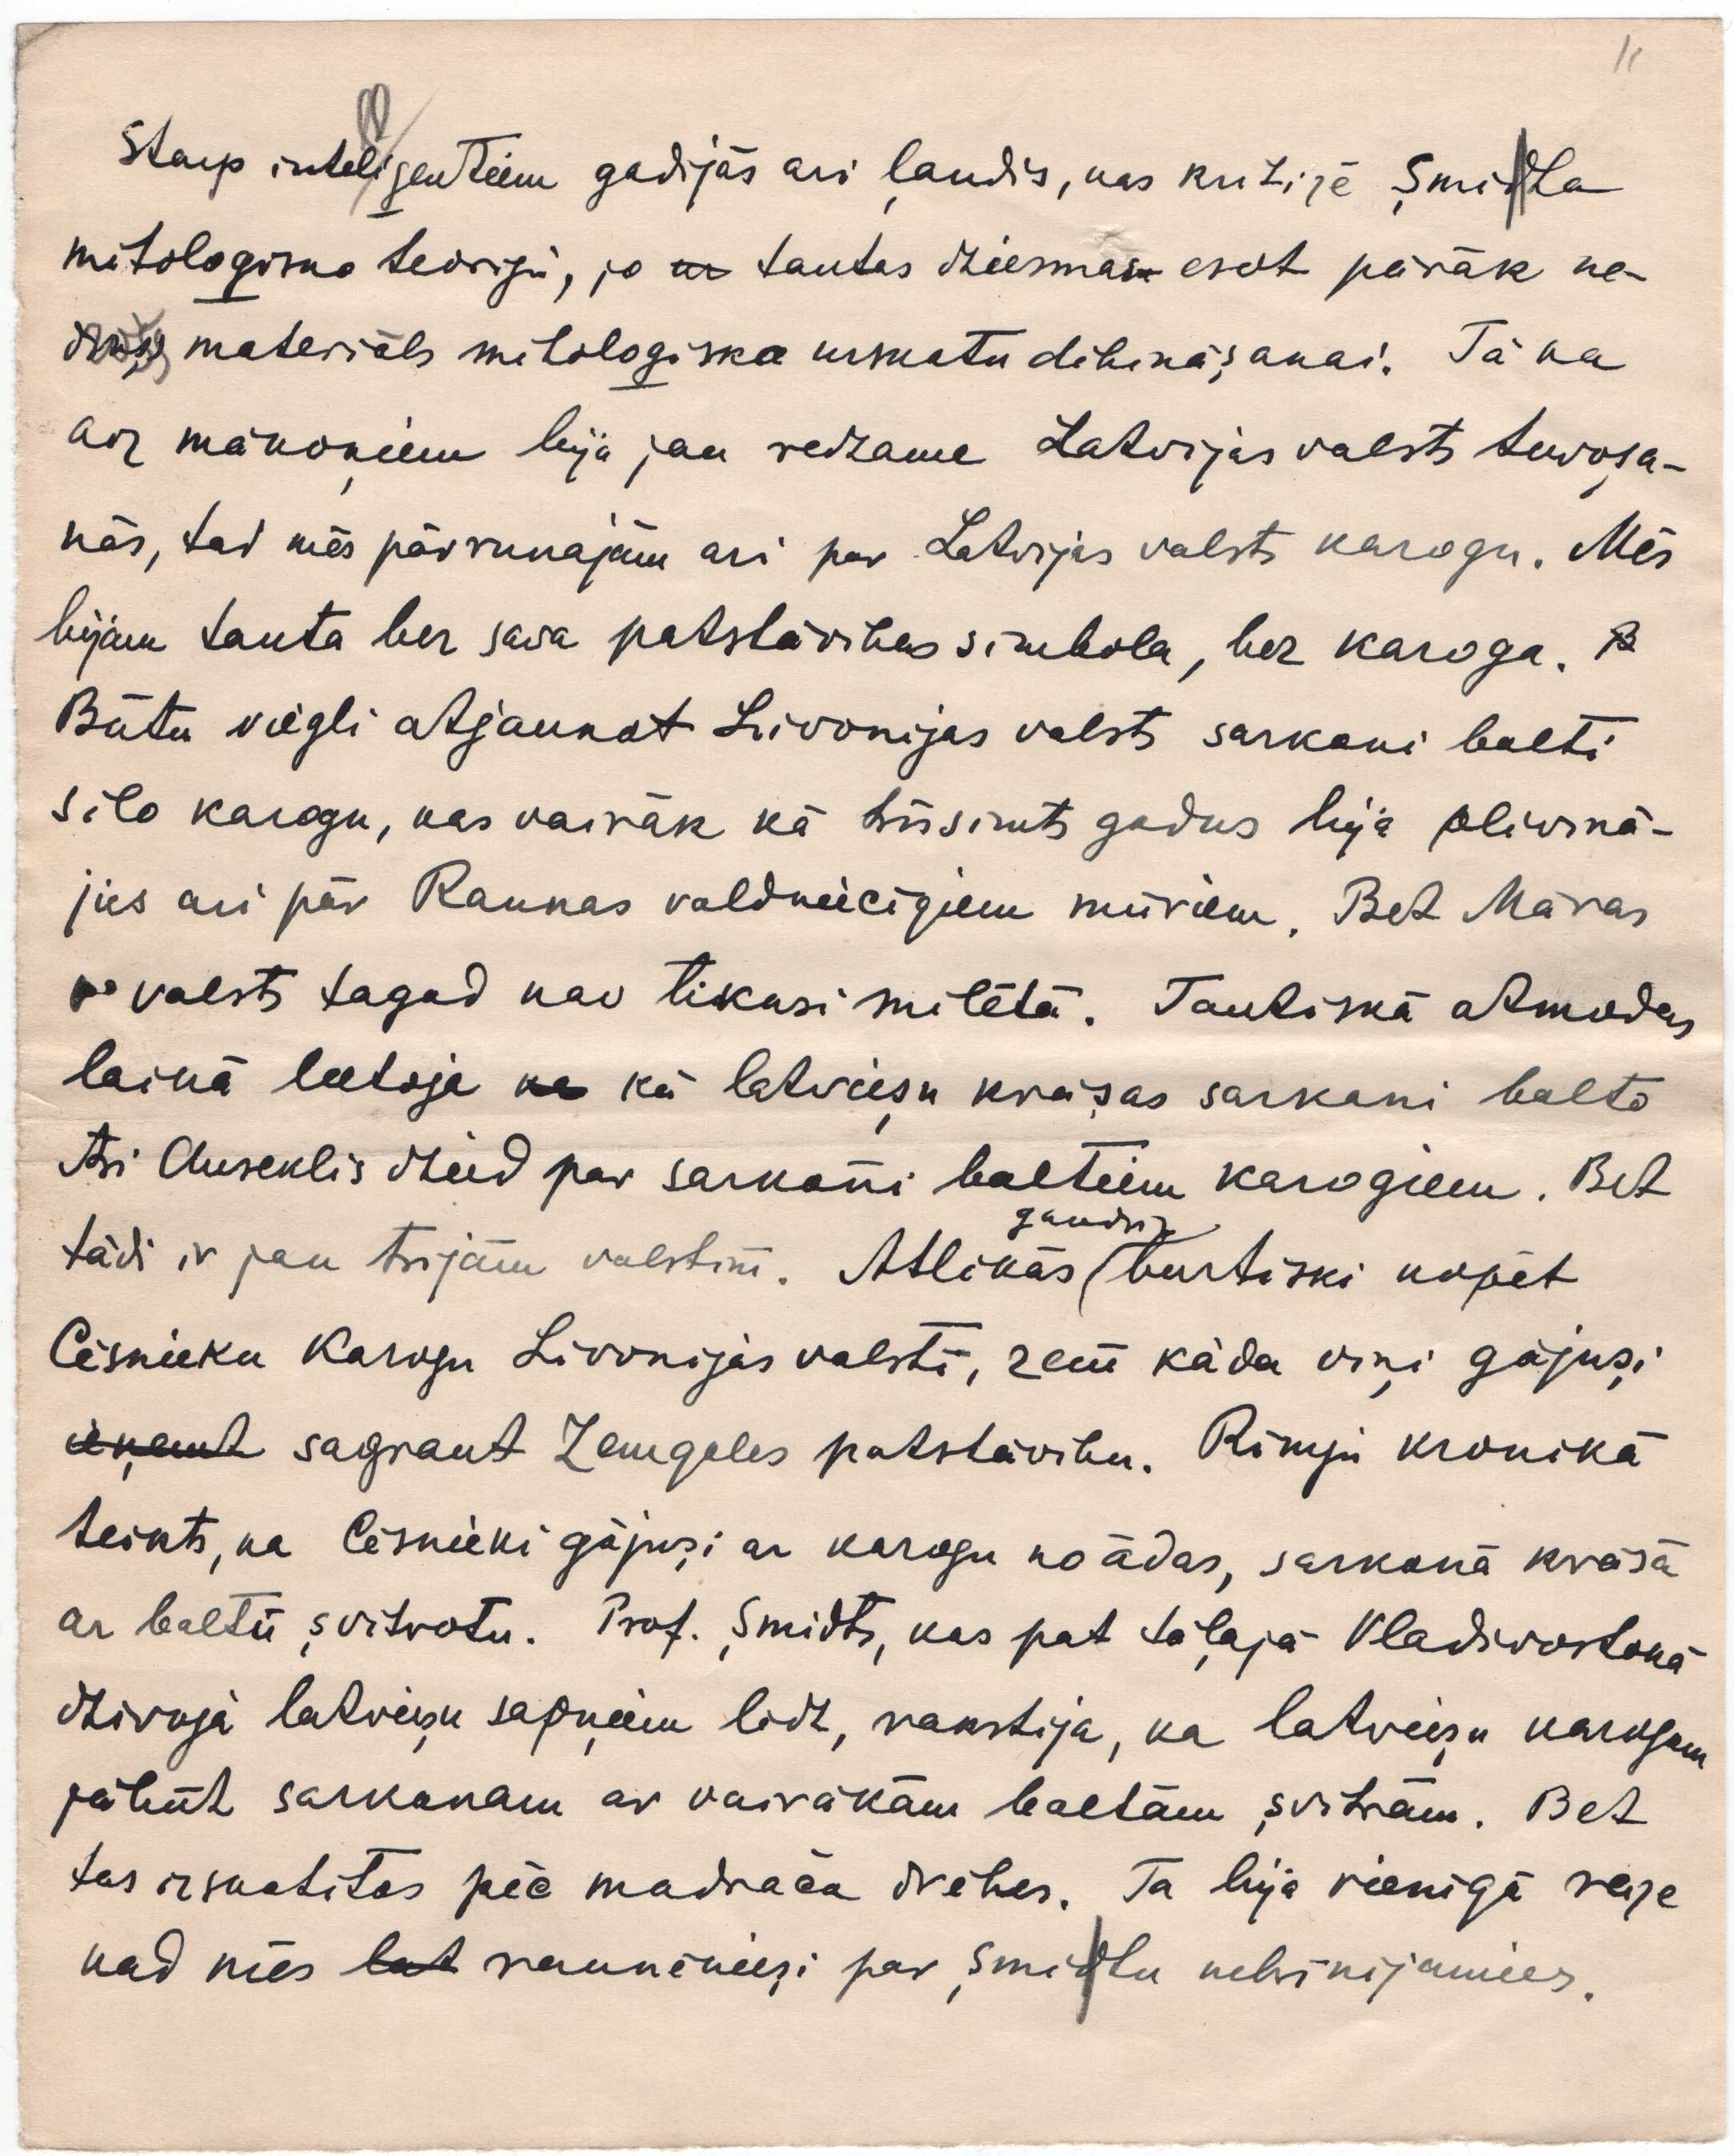 11
Starp inteliģentiem gadijās ari ļaudis, kas kritizē Şmidta
mitoloģisko teoriju, jo tautas dziesmas esot pārāk ne-
drošs materiāls mitoloģiska uzskatu dibināşanai. Tā ka
aiz mākoņiem bija jau redzama Latvijas valsts tuvoşa-
nās, tad mēs pārrunajām ari par Latvijas valsts karogu. Mēs
bijām tauta bez sava patstāvibas simbola, bez karoga. B
Būtu viegli atjaunot Livonijas valsts sarkani balti
silo karogu, kas vairāk kā trīsimts gadus bija plivinā-
jies ari pār Raunas valdnieciģiem mūriem. Bet Māras
valsts tagad nav tikusi milēta. Tautiskā atmodas
laikā lietoja ka kā latvieşu krāşas sarkani balto
Ari Auseklis dzied par sarkani baltiem karogiem. Bet
tādi ir jau trijām valstīm. Atlikās gandriz burtiski kopēt
Cēsnieku karogu Livonijas valstī, zem kāda viņi gājuşi
ieņemt sagraut Zemgales patstāvibu. Rimju kronikā
teikts, ka Cēsnieki gājuşi ar karogu no ādas, sarkanā krāsā
ar baltu şvitrotu. Prof. Şmidts, kas pat tāļajā Vladivostokā
dzivoja latvieşu sapņiem lidz, rakstija, ka latvieşu karogam
jābūt sarkanam ar vairākām baltām şvitrām. Bet
tas izskatitos pēc madrača drēbes. Ta bija vienigā reize
kad mēs lat raunēnieşi par Şmidtu nebrinijamies.